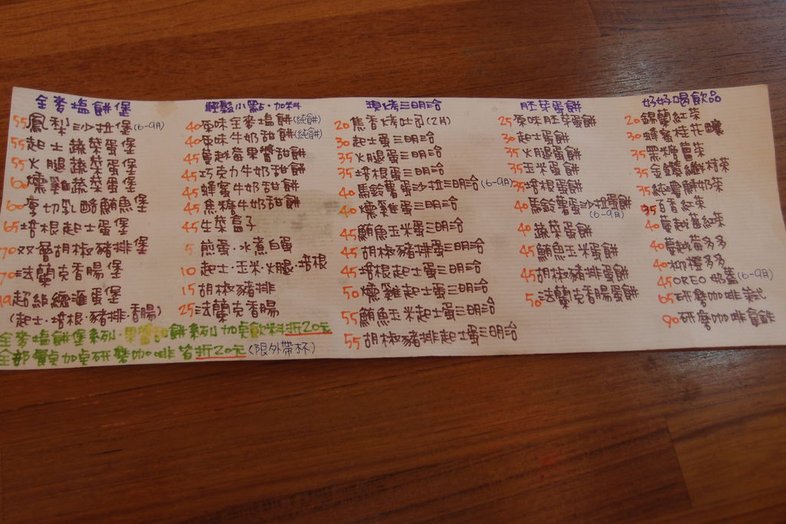 全麥搵餅堡
55鳳梨沙拉堡(6-9月)
55起士蔬菜蛋堡
55火腿蔬菜蛋堡
60燻雞蔬菜蛋堡
60厚切乳酪鮪魚堡
65培根起士蛋堡
70双層胡椒豬排堡
70法蘭克香腸堡
99超級總匯蛋堡
(起士·培根·豬排·香腸)
輕鬆小點·加料
40原味全麥搵餅(純餅)
40原味牛奶甜餅(純餅)
45蔓越莓果醬甜餅
45巧克力牛奶甜餅
45蜂蜜牛奶甜餅
45焦糖牛奶甜餅
45生菜盒子
5煎蛋·水煮白蛋
10起士·玉米·火腿·培根
15胡椒豬排
25法蘭克香腸
現烤三明治
20焦香烤吐司(2片)
30起士蛋三明治
35火腿蛋三明治
35培根蛋三明治
40馬鈴薯蛋沙拉三明治(6-9月)
40燻雞蛋三明治
45鮪魚玉米蛋三明治
45胡椒豬排蛋三明治
45培根起士蛋三明治
50燻雞起士蛋三明治
55鮪魚玉米起士蛋三明治
55胡椒豬排起士蛋三明治
胚芽蛋餅
25原味胚芽蛋餅
30起士蛋餅
35火腿蛋餅
35玉米蛋餅
35培根蛋餅
40馬鈴薯蛋沙拉蛋餅
(6-9月)
40蔬菜蛋餅
45鮪魚玉米蛋餅
45胡椒豬排蛋餅
50法蘭克香腸蛋餅
好好喝飲品
20錫蘭紅茶
30蜂蜜桂花釀
35黑糖薑茶
35金鑽鳳梨茶
35純濃鮮奶茶
35百香紅茶
40蔓越莓紅茶
40蔓越莓多多
40柳橙多多
45OREO奶蓋(6-9月)
65研磨咖啡美式
90研磨咖啡拿鐵
全麥搵餅堡系列·果醬甜餅系列 加桌飲料折20元
全部餐點加桌研磨咖啡皆折20元(限外帶杯)